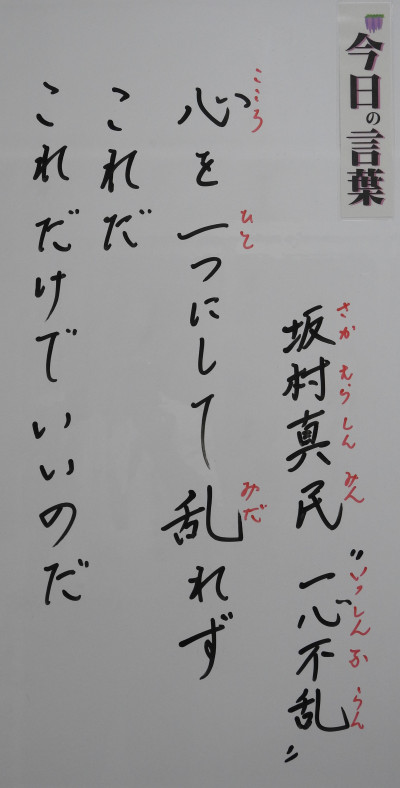 今日の言葉
坂村真民 "一心不乱"
さか むら しん みん いっ しん ふ らん
心を一つにして乱れず
こころ ひと みだ
これだ
これだけでいいのだ